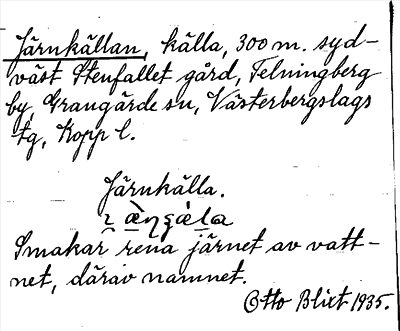 Järnkällan, källa, 300 m. syd-
väst Stenfallet gård, Telningberg
by, Grangärde sn, Västerbergslags
tg, Kopp l.
Järnkälla.
Smakar rena järnet av vatt-
net, därav namnet.
Otto Blixt 1935.